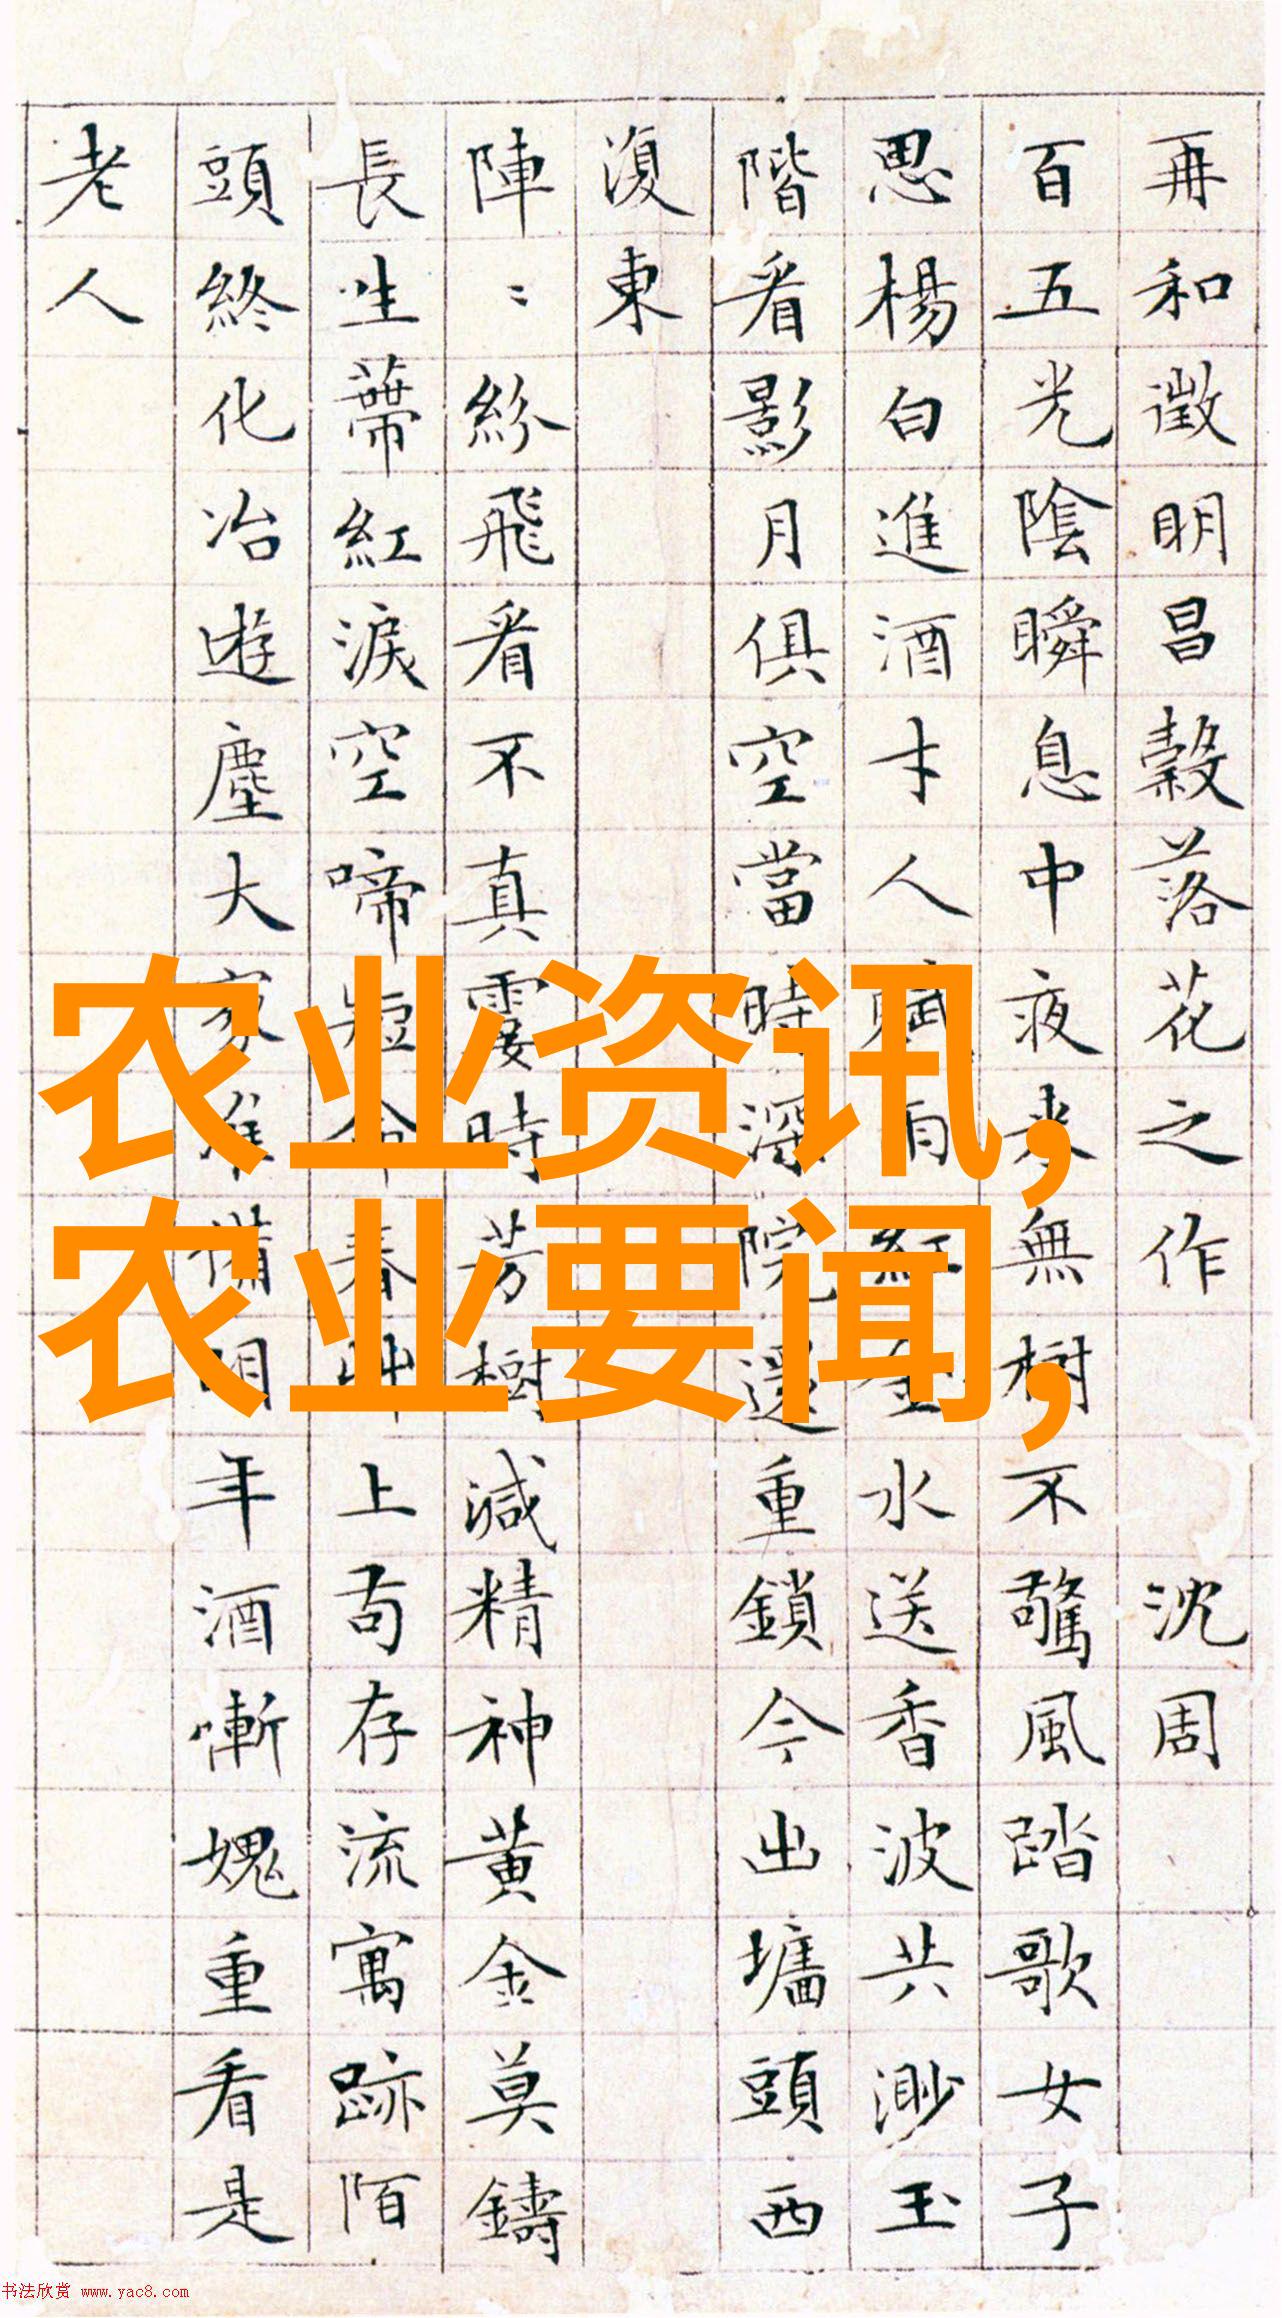 再和徵明昌穀落花之作 沈周
百五光陰瞬息中夜来無樹不驚風踏歌女子
思楊白進酒才人賦雨紅金水送香波共渺玉
階看影月俱空當時深院還重鎖今出墻頭西
復東
陣〻紛飛看不真霎時芳樹減精神黄金莫鑄
長生蔕紅淚空啼短命春艸上苟存流寓跡陌
頭終化冶遊塵大家準備明年酒慚愧重看是
老人
农业资讯,
农业要闻,
书法欣赏 www.yac8.com